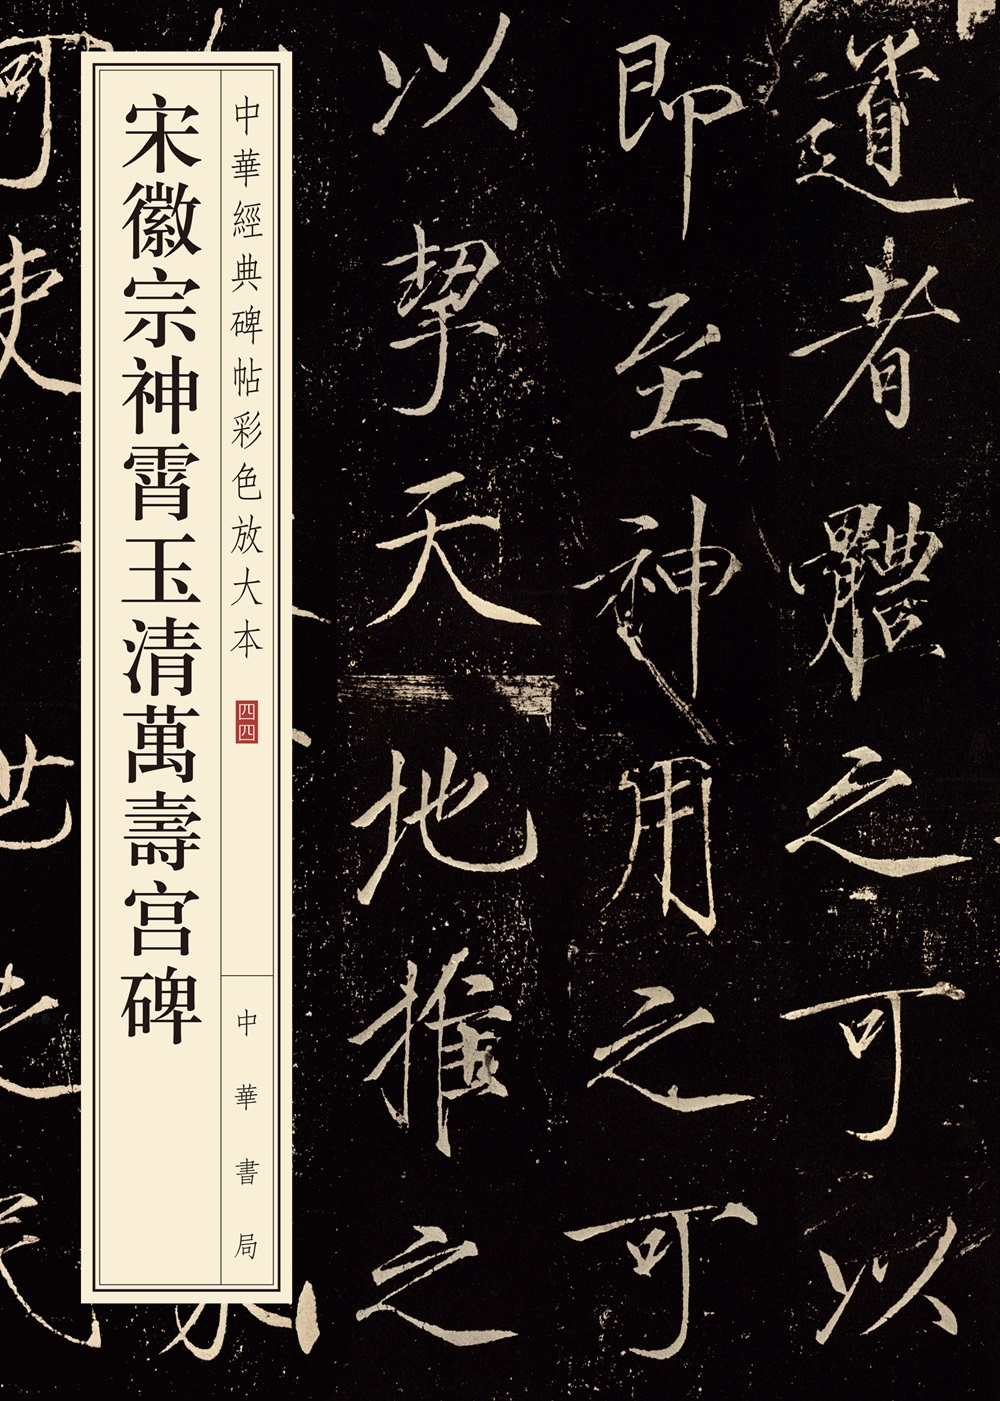 道者體之可以
即至神用之可
以挈天地推之
中華經典碑帖彩色放大本
四四
中華書局
宋徽宗神霄玉清萬壽宫碑